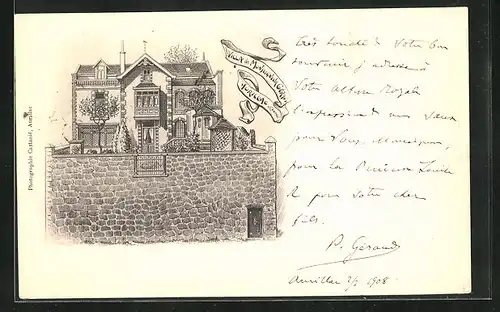 Photographie Cattanéi, Aurillac
Très touché de Votre bon
souvenir j'adresse à
Votre Altesse Royale
l'expression de mes vœux
pour Vous, Monseigneur,
pour la Princesse
& pour Votre cher
fils.
P. Géraud
Aurillac 2/1 1908